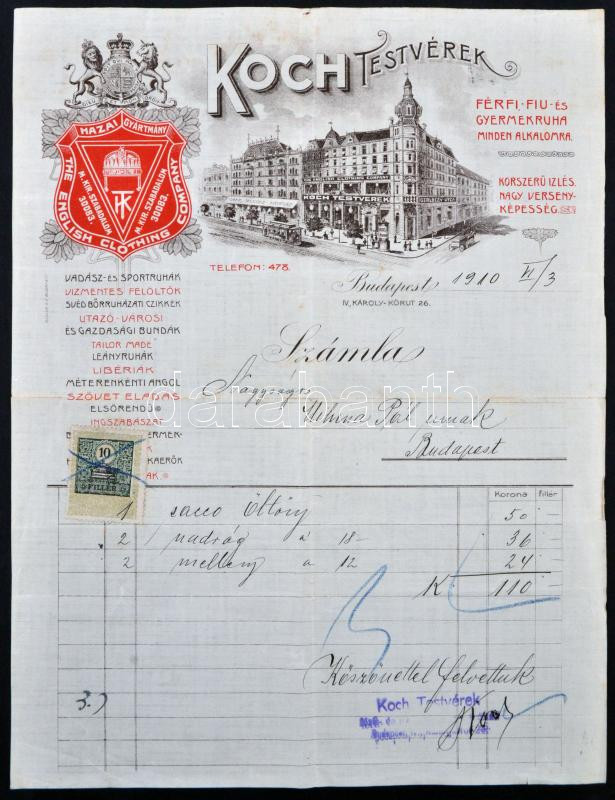 KOCH TESTVÉREK
HAZAI GYÁRTMÁNY
M. KIR. SZABADALOM
30083.
M. KIR. SZABADALOM
30083.
THE ENGLISH CLOTHING COMPANY
KOCH TESTVÉREK
FÉRFI-, FIU- ÉS
GYERMEKRUHA
MINDEN ALKALOMRA.
KORSZERŰ IZLÉS.
NAGY VERSENY-
KÉPESSÉG.
TELEFON: 478.
Budapest 1910 VI/3
IV, KÁROLY-KÖRUT 26.
VADÁSZ- ÉS SPORTRUHÁK
VIZMENTES FELÖLTŐK
SVÉD BŐRRUHÁZATI CZIKKEK
UTAZÓ-, VÁROSI
ÉS GAZDASÁGI BUNDÁK
TAILOR MADE
LEÁNYRUHÁK
LIBÉRIÁK
MÉTERENKÉNTI ANGOL
SZÖVET ELADÁS
ELSŐRENDŰ
INGSZABÁSZAT
Számla
Nagyságos
Pál urnak
Budapest
10
FILLÉR
Korona fillér
1 sacco öltöny 50 –
2 nadrág á 18– 36 –
2 mellény á 12 24 –
K 110 –
Köszönettel felvettük
3.)
Koch Testvérek
darabanth